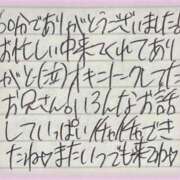 60分でありがとうございました!
お忙しい中来てくれてあり
がと(泣)イキニトークしてた
お兄さん。いろんなお話
していっぱい仲仲でき
たね♥またいつでも来てね♥